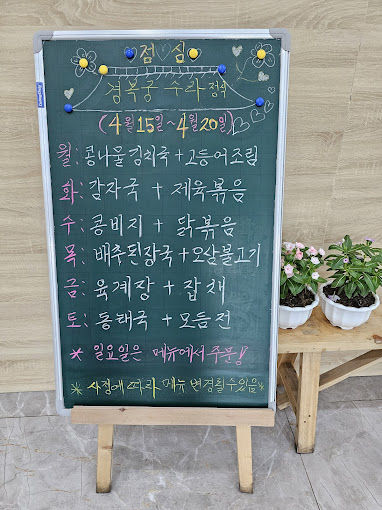 점 심
경복궁 수라 정식
(4월 15일 ~ 4월 20일)
월: 콩나물김치국 + 고등어조림
화: 감자국 + 제육볶음
수: 콩비지 + 닭볶음
목: 배추된장국 + 오삼불고기
금: 육계장 + 잡채
토: 동태국 + 모듬전
* 일요일은 메뉴에서 주문!
* 사정에 따라 메뉴 변경될수있음